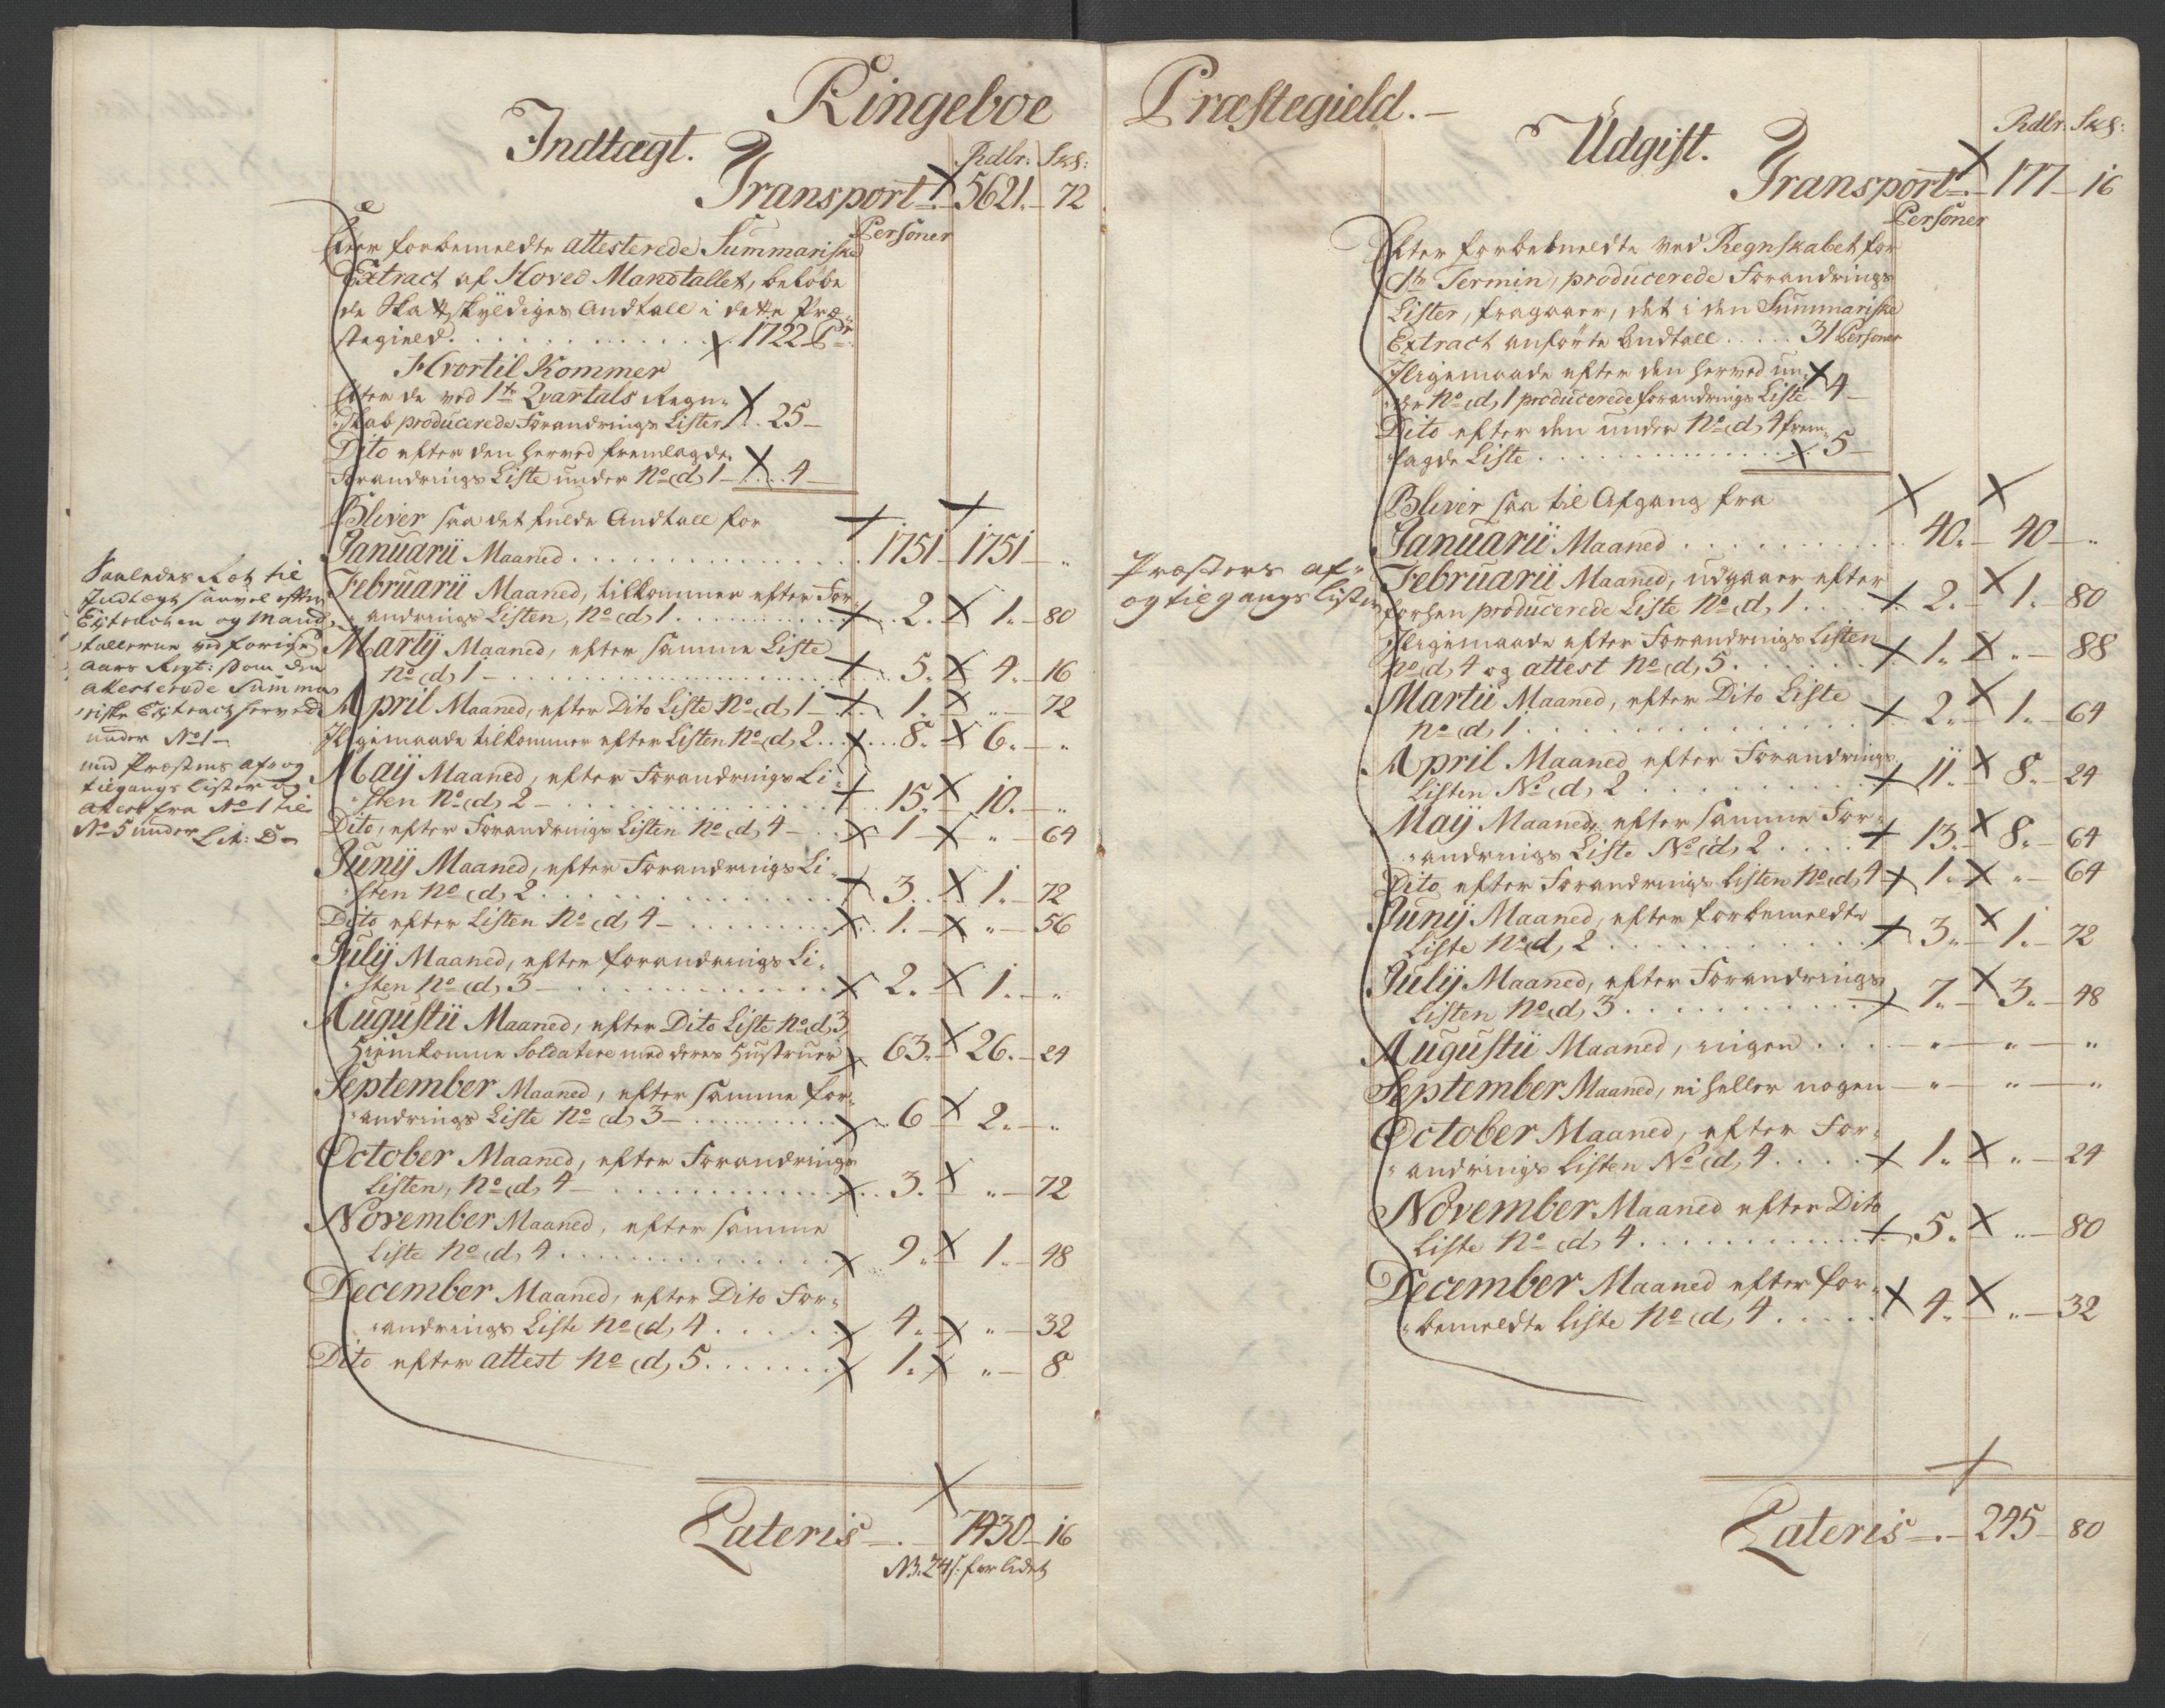 Ringeboe
Indtægt.
Rdlr: Skl:
Transport 5621. 72
Personer
Efter forbemeldte attesterede Summariske
Extract af Hoved Mandtallet, beløbe
de Skattskyldiges Andtall i dette Præ-
stegield . . . 1722 Pr
Hvortil Kommer
Efter de ved 1te Qvartals Regn-
skab producerede Forandrings Lister . . 25
Dito efter den herved fremlagde
Forandrings Liste under No d, 1 . . 4
Bliver saa det fulde Andtall for
Januarii Maaned . . . 1751 1751 "
Februarii Maaned, tilkommer efter For-
andrings Listen, No d, 1 . . . 2. 1. 80
Martij Maaned, efter samme Liste
No d, 1 . . . 5. 4. 16
April Maaned, efter Dito Liste No d, 1 1. " 72
Iligemaade tilkommer efter Listen No d, 2 . . 8. 6. "
Maij Maaned, efter Forandrings Li-
sten No d, 2 . . . 15. 10. "
Dito, efter Forandrings Listen No d, 4 . . 1 " 64
Junij Maaned, efter Forandrings Li-
sten No d, 2 . . . 3. 1. 72
Dito efter Listen No d, 4 . . . 1. " 56
Julij Maaned, efter forandrings Li-
sten No d, 3 . . . 2. 1. "
Augustii Maaned, efter Dito Liste No d, 3
Hiemkomne Soldatere med deres Hustruer 63. 26. 24
September Maaned, efter samme for-
andrings Liste No d, 3 . . . 6 2. "
October Maaned, efter Forandrings
Listen, No d, 4 . . . 3. " 72
November Maaned, efter samme
Liste No d, 4 . . . 9. 1. 48
December Maaned, efter Dito For-
andrings Liste No d, 4 . . . 4. " 32
Dito efter attest No d, 5 . . . 1. " 8
Lateris 7430 16
NB. 24 s: for lidet
Saaledes Rot til
Indtægt saavel efter
Extracten og Mand-
tallerne ved forige
Aars Regt: som den
attesterede Summa-
riske Extract herved
under No 1
med Præstens af- og
tilgangs Lister og
attest fra No 1 til
No 5 under Lit: D
Præstegield.
Udgift.
Rdlr: Skl:
Transport 177 16
Personer
Efter forbemeldte ved Regnskabet for
1te Termin, producerede Forandrings
Lister, fragaaer, det i den Summariske
Extract anførte Andtall . . . 31 Personer
Iligemaade efter den herved un-
der No d, 1 producerede forandrings Liste 4
Dito efter den under No d, 4 frem-
lagde Liste . . . 5
Bliver saa til Afgang fra
Januarii Maaned . . . 40. 40 "
Februarii Maaned, udgaaer efter
forhen producerede Liste No d, 1 . . . 2. 1. 80
Iligemaade efter Forandrings Listen
No d, 4 og attest No d, 5 . . . 1. " 88
Martii Maaned, efter Dito Liste
No d, 1 . . . 2. 1. 64
April Maaned efter Forandrings
Listen No d, 2 . . . 11. 8. 24
Maij Maaned, efter samme For-
andrings Liste No d, 2 . . . 13. 8. 64
Dito, efter Forandrings Listen No d, 4 1. " 64
Junij Maaned, efter forbemeldte
Liste No d, 2 . . . 3. 1. 72
Julij Maaned, efter Forandrings
Listen No d, 3 . . . 7. 3. 48
Augustii Maaned, ingen . . . " " "
September Maaned, ei heller nogen " " "
October Maaned, efter For-
andrings Listen No d, 4 . . . 1. " 24
November Maaned efter Dito
Liste No d, 4 . . . 5. " 80
December Maaned efter for-
bemeldte Liste No d, 4 . . . 4. " 32
Lateris 245 80
Præstens af-
og tilgangs Lister